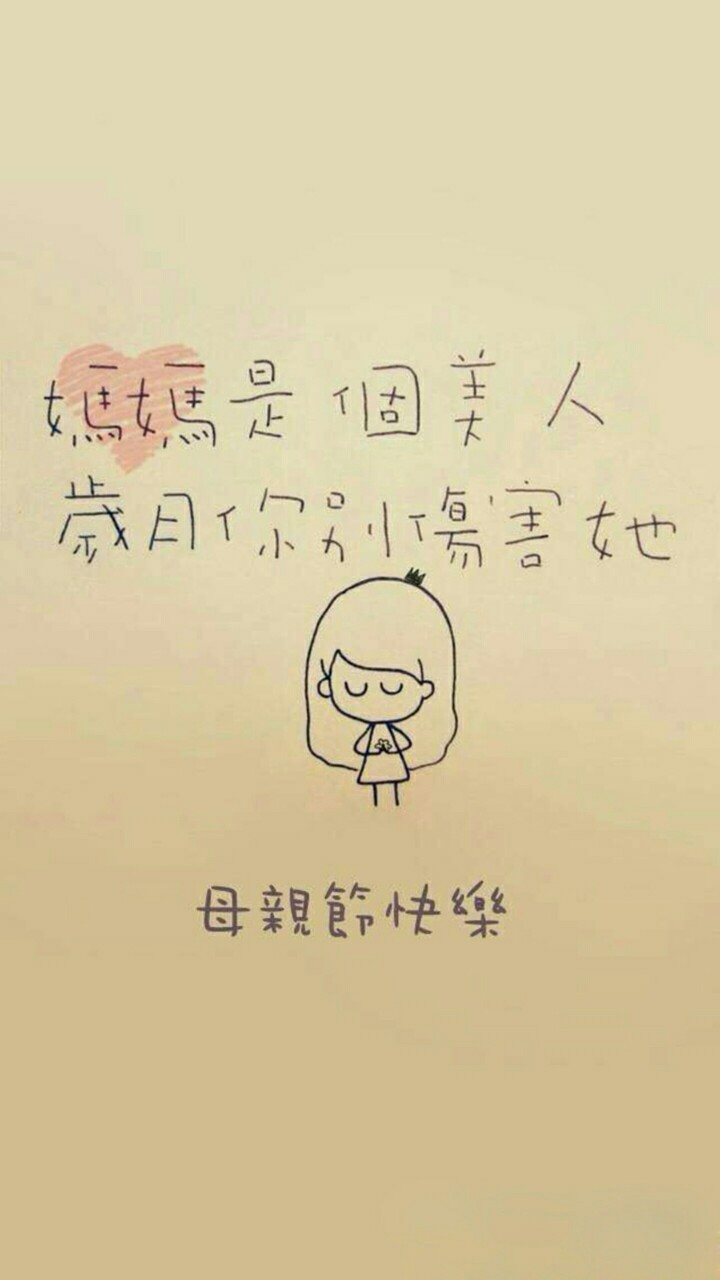 媽媽是個美人
歲月你別傷害她
母親節快樂